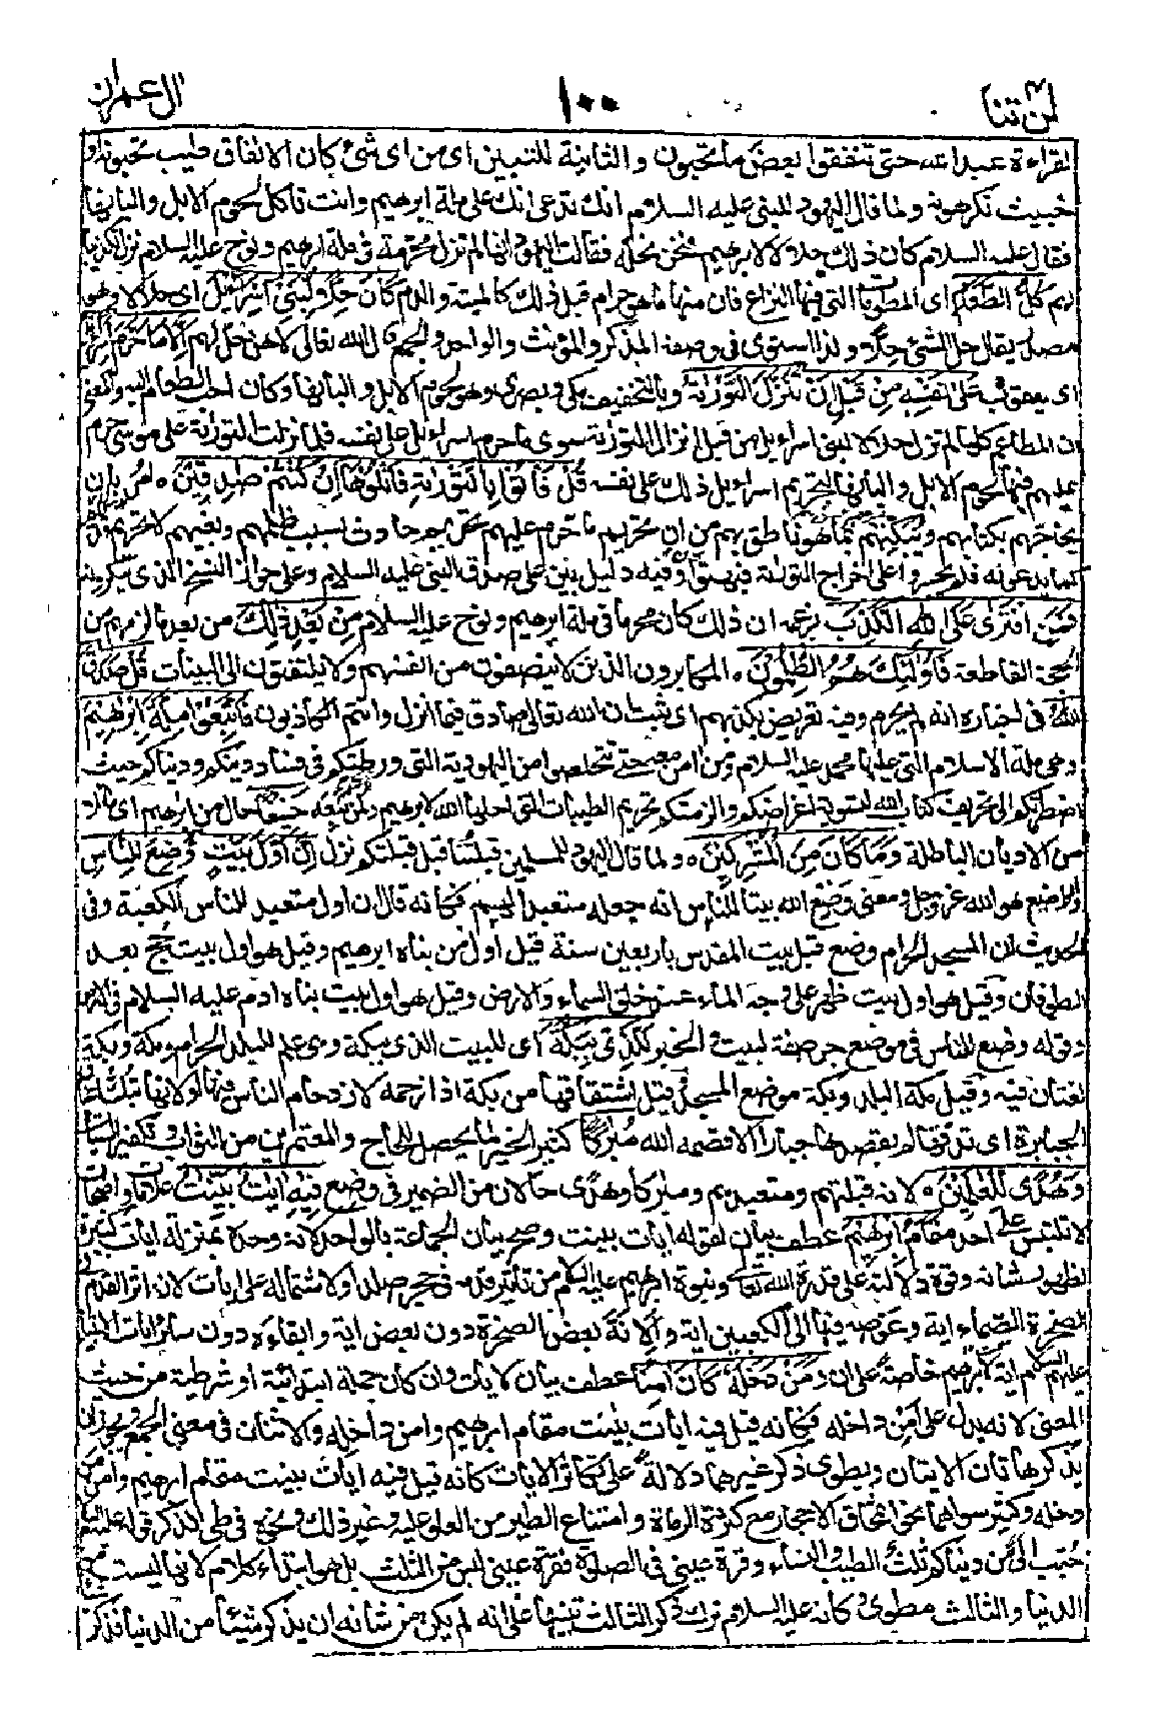 لن تنا ١٠٠ ال عمران
لقراءة عبد الله حتى تنفقوا بعض ما تحبون والثانية للتبيين اى من اى شئ كان الانفاق طيب تحبونه او
خبيث تكرهونه ولما قال اليهود للنبى عليه السلام انك تدعى انك على ملة ابرهيم وانت تاكل لحوم الابل والبانها
فقال عليه السلام كان ذلك حلالا لابرهيم فنحن نحله فقالت اليهود انها لم تزل محرمة فى ملة ابرهيم ونوح عليه السلام نزل تكذيبا
لهم كُلُّ الطَّعَامِ اى المطعومات التى فيها النزاع فان منها ما هو حرام قبل ذلك كالميتة والدم كَانَ حِلًّا لِّبَنِىْ اِسْرَائِيْلَ اى حلالا وهو
مصدر يقال حل الشئ حلا ولذا استوى فى وصفه المذكر والمؤنث والواحد والجمع قال الله تعالى لا هن حل لهم اِلَّا مَا حَرَّمَ اِسْرَائِيْلُ
اى يعقوب عَلٰى نَفْسِهٖ مِنْ قَبْلِ اَنْ تُنَزَّلَ التَّوْرٰىةُ وبالتخفيف مكى وبصرى وهو لحوم الابل والبانها وكان احب الطعام اليه والمعنى
ان المطاعم كلها لم تزل حلالا لبنى اسراءيل من قبل انزال التورىة سوى ما حرم اسراءيل على نفسه فلما نزلت التورىة على موسى حرم
عليهم فيها لحوم الابل والبانها لتحريم اسراءيل ذلك على نفسه قُلْ فَاْتُوْا بِالتَّوْرٰىةِ فَاتْلُوْهَا اِنْ كُنْتُمْ صٰدِقِيْنَ ه امر بان
يحاجهم بكتابهم ويبكتهم بما هو ناطق به من ان تحريم ما حرم عليهم تحريم حادث بسبب ظلمهم وبغيهم لا تحريم قديم
كما يدعونه فلم يجسروا على اخراج التورىة فبهتوا وفيه دليل بين على صدق النبى عليه السلام وعلى جواز النسخ الذى ينكرونه
فَمَنِ افْتَرٰى عَلَى اللهِ الْكَذِبَ بزعمه ان ذلك كان محرما فى ملة ابرهيم ونوح عليه السلام مِنْ بَعْدِ ذٰلِكَ من بعد ما لزمهم من
الحجة القاطعة فَاُولٰئِكَ هُمُ الظّٰلِمُوْنَ ه المكابرون الذين لا ينصفون من انفسهم ولا يلتفتون الى البينات قُلْ صَدَقَ
اللهُ فى اخباره انه لم يحرم وفيه تعريض بكذبهم اى ثبت ان الله تعالى صادق فيما انزل وانتم الكاذبون فَاتَّبِعُوْا مِلَّةَ اِبْرٰهِيْمَ
وهى ملة الاسلام التى عليها محمد عليه السلام ومن امن معه حتى تتخلصوا من اليهودية التى ورطتكم فى فساد دينكم ودنياكم حيث
اضطرتكم الى تحريف كتاب الله لتسوية اغراضكم والزمتكم تحريم الطيبات التى احلها الله لابرهيم ولمن تبعه حَنِيْفًا حال من ابرهيم اى مائلا
من الاديان الباطلة وَمَا كَانَ مِنَ الْمُشْرِكِيْنَ ه ولما قال اليهود للمسلمين قبلتنا قبل قبلتكم نزل اِنَّ اَوَّلَ بَيْتٍ وُّضِعَ لِلنَّاسِ
والواضع هو الله عز وجل ومعنى وضع الله بيتا للناس انه جعله متعبدا لهم فكانه قال ان اول متعبد للناس الكعبة وفى
الحديث ان المسجد الحرام وضع قبل بيت المقدس باربعين سنة قيل اول من بناه ابرهيم وقيل هو اول بيت حج بعد
الطوفان وقيل هو اول بيت ظهر على وجه الماء عند خلق السماء والارض وقيل هو اول بيت بناه ادم عليه السلام فى الارض
وقوله وضع للناس فى موضع جر صفة لبيت والخبر لَلَّذِىْ بِبَكَّةَ اى للبيت الذى ببكة وهى علم للبلد الحرام ومكة وبكة
لغتان فيه وقيل مكة البلد وبكة موضع المسجد وقيل اشتقاقها من بكه اذا زحمه لازدحام الناس فيها او لانها تبك اعناق
الجبابرة اى تدقها لم يقصدها جبار الا قصمه الله مُبٰرَكًا كثير الخير لما يحصل للحاج والمعتمرين من الثواب وتكفير السيئات
وَهُدًى لِّلْعٰلَمِيْنَ ه لانه قبلتهم ومتعبدهم ومباركا وهدى حالان من الضمير فى وضع فِيْهِ اٰيٰتٌ بَيِّنٰتٌ علامات واضحات
لا تلتبس على احد مَقَامُ اِبْرٰهِيْمَ عطف بيان لقوله ايات بينت وصح بيان الجماعة بالواحد لانه وحده بمنزلة ايات كثيرة
لظهور شانه وقوة دلالته على قدرة الله تعالى ونبوة ابرهيم عليه السلام من تاثير قدمه فى حجر صلد او لاشتماله على ايات لان اثر القدم فى
الصخرة الصماء اية وغوصه فيها الى الكعبين اية والانة بعض الصخرة دون بعض اية وابقاءه دون سائر ايات الانبياء
عليهم السلام اية لابرهيم خاصة على ان وَمَنْ دَخَلَهٗ كَانَ اٰمِنًا عطف بيان لايات وان كان جملة ابتدائية او شرطية من حيث
المعنى لانه يدل على امن داخله فكانه قيل فيه ايات بينت مقام ابرهيم وامن داخله والاثنان فى معنى الجمع ويجوز ان
يذكر هاتان الايتان ويطوى ذكر غيرهما دلالة على تكاثر الايات كانه قيل فيه ايات بينت مقام ابرهيم وامن من
دخله وكثير سواهما نحو انمحاق الاحجار مع كثرة الرماة وامتناع الطير من العلو عليه وغير ذلك ونحوه فى طى الذكر قوله عليه السلام
حبب الى من دنياكم ثلث الطيب والنساء وقرة عينى فى الصلوة فقرة عينى ليس من الثلث بل هو ابتداء كلام لانها ليست من
الدنيا والثالث مطوى وكانه عليه السلام ترك ذكر الثالث تنبيها على انه لم يكن من شانه ان يذكر شيئا من الدنيا فذكر